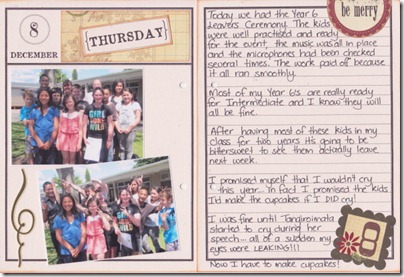 8
DECEMBER
{THURSDAY}
be merry
Today we had the Year 6
Leavers Ceremony. The kids
were well practised and ready
for the event, the music was all in place
and the microphones had been checked
several times. The work paid off because
it all ran smoothly.
Most of my Year 6's are really ready
for Intermediate and I know they will
all be fine.
After having most of these kids in my
class for two years it's going to be
bittersweet to see them actually leave
next week.
I promised myself that I wouldn't cry
this year.. In fact I promised the kids
I'd make the cupcakes if I DID cry!
I was fine until Tangiroimata
started to cry during her
speech... all of a sudden my
eyes were LEAKING!!!
Now I have to make cupcakes!
8